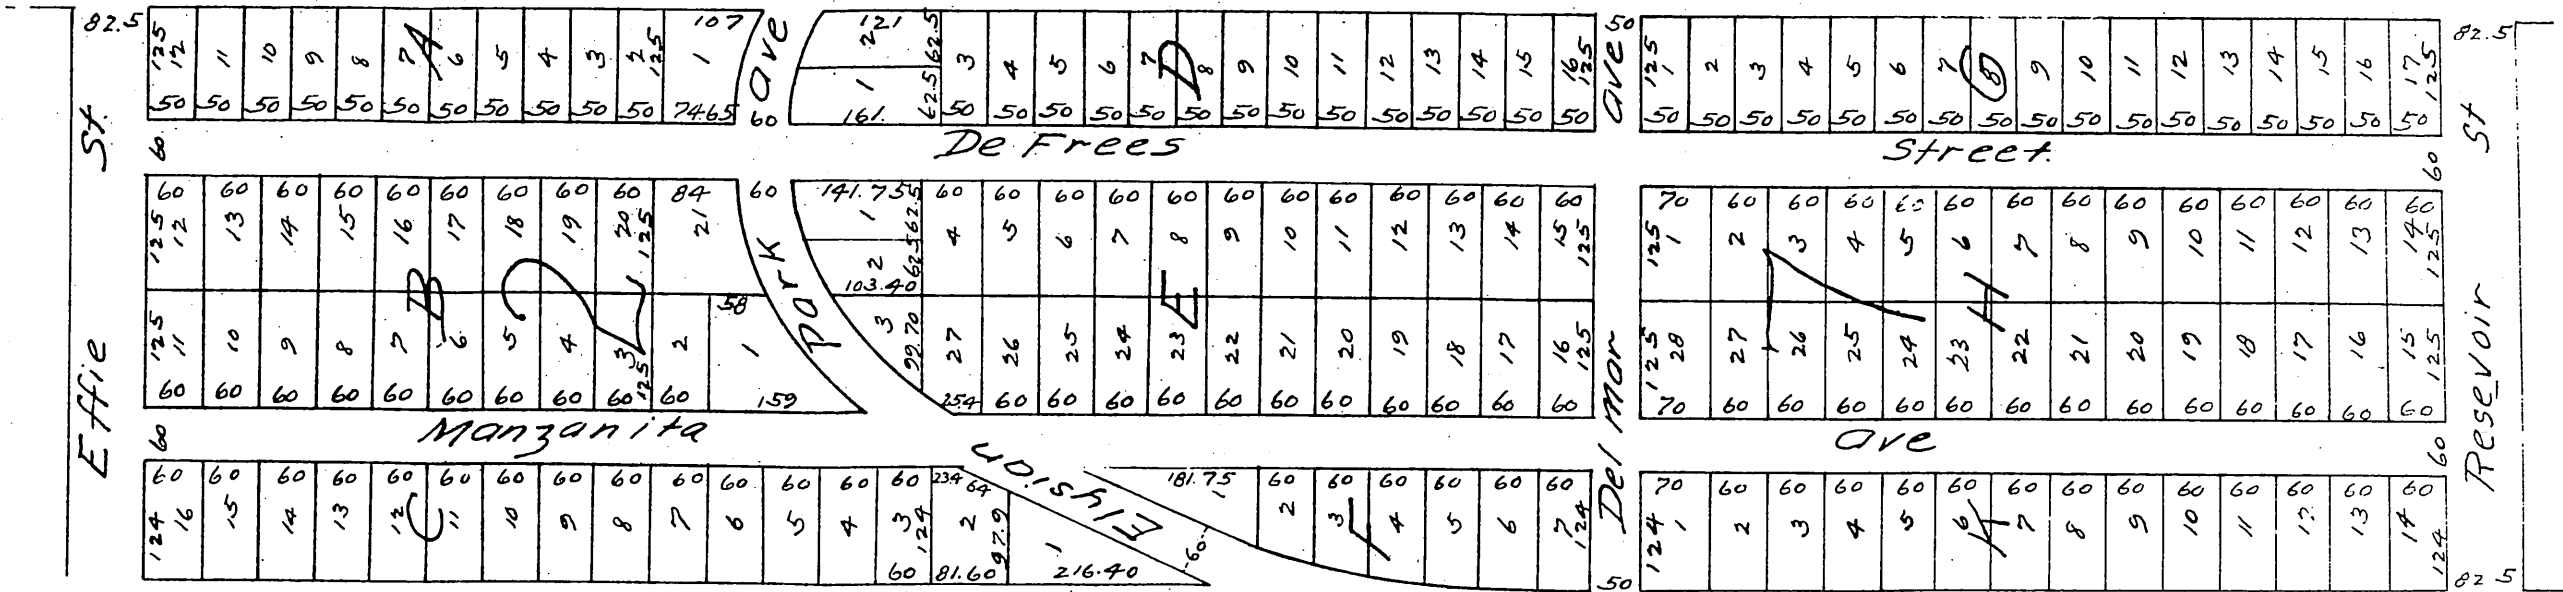 82.5
Effie St.
125 12 11 10 9 8 7 A 6 5 4 3 2 125 1 107
50 50 50 50 50 50 50 50 50 50 50 74.65
60 Ave
121 2 62.5
1 62.5 161.
3 4 5 6 7 D 8 9 10 11 12 13 14 15 16 125
50 50 50 50 50 50 50 50 50 50 50 50 50 50
Ave 50
125 1 2 3 4 5 6 7 8 9 10 11 12 13 14 15 16 17 125
50 50 50 50 50 50 50 50 50 50 50 50 50 50 50 50 50
82.5
60 De Frees Street. 60
60 60 60 60 60 60 60 60 60 84
125 12 13 14 15 16 17 18 19 20 125 21
B
125 11 10 9 8 7 6 5 4 3 125 2 58 1
60 60 60 60 60 60 60 60 60 60 159
60 Park
141.755 1 62.5
2 62.5 103.40
3 99.70
60 60 60 60 60 60 60 60 60 60 60 60
4 5 6 7 8 9 10 11 12 13 14 15 125
E
27 26 25 24 23 22 21 20 19 18 17 16 125
25.4 60 60 60 60 60 60 60 60 60 60 60
Del Mar
70 60 60 60 60 60 60 60 60 60 60 60 60 60
125 1 2 3 4 5 6 7 8 9 10 11 12 13 14 125
7 H
125 28 27 26 25 24 23 22 21 20 19 18 17 16 15 125
70 60 60 60 60 60 60 60 60 60 60 60 60 60
Resevoir St
60 Manzanita Ave 60
60 60 60 60 60 60 60 60 60 60 60 60 60 60 234 64
124 16 15 14 13 12 C 11 10 9 8 7 6 5 4 3 124 2 97.9 1
60 81.60 216.40
Elysian
60
181.75 60 60 60 60 60 60
1 2 3 4 5 6 7 124
50
70 60 60 60 60 60 60 60 60 60 60 60 60 60
124 1 2 3 4 5 6 K 7 8 9 10 11 12 13 14 124
82.5